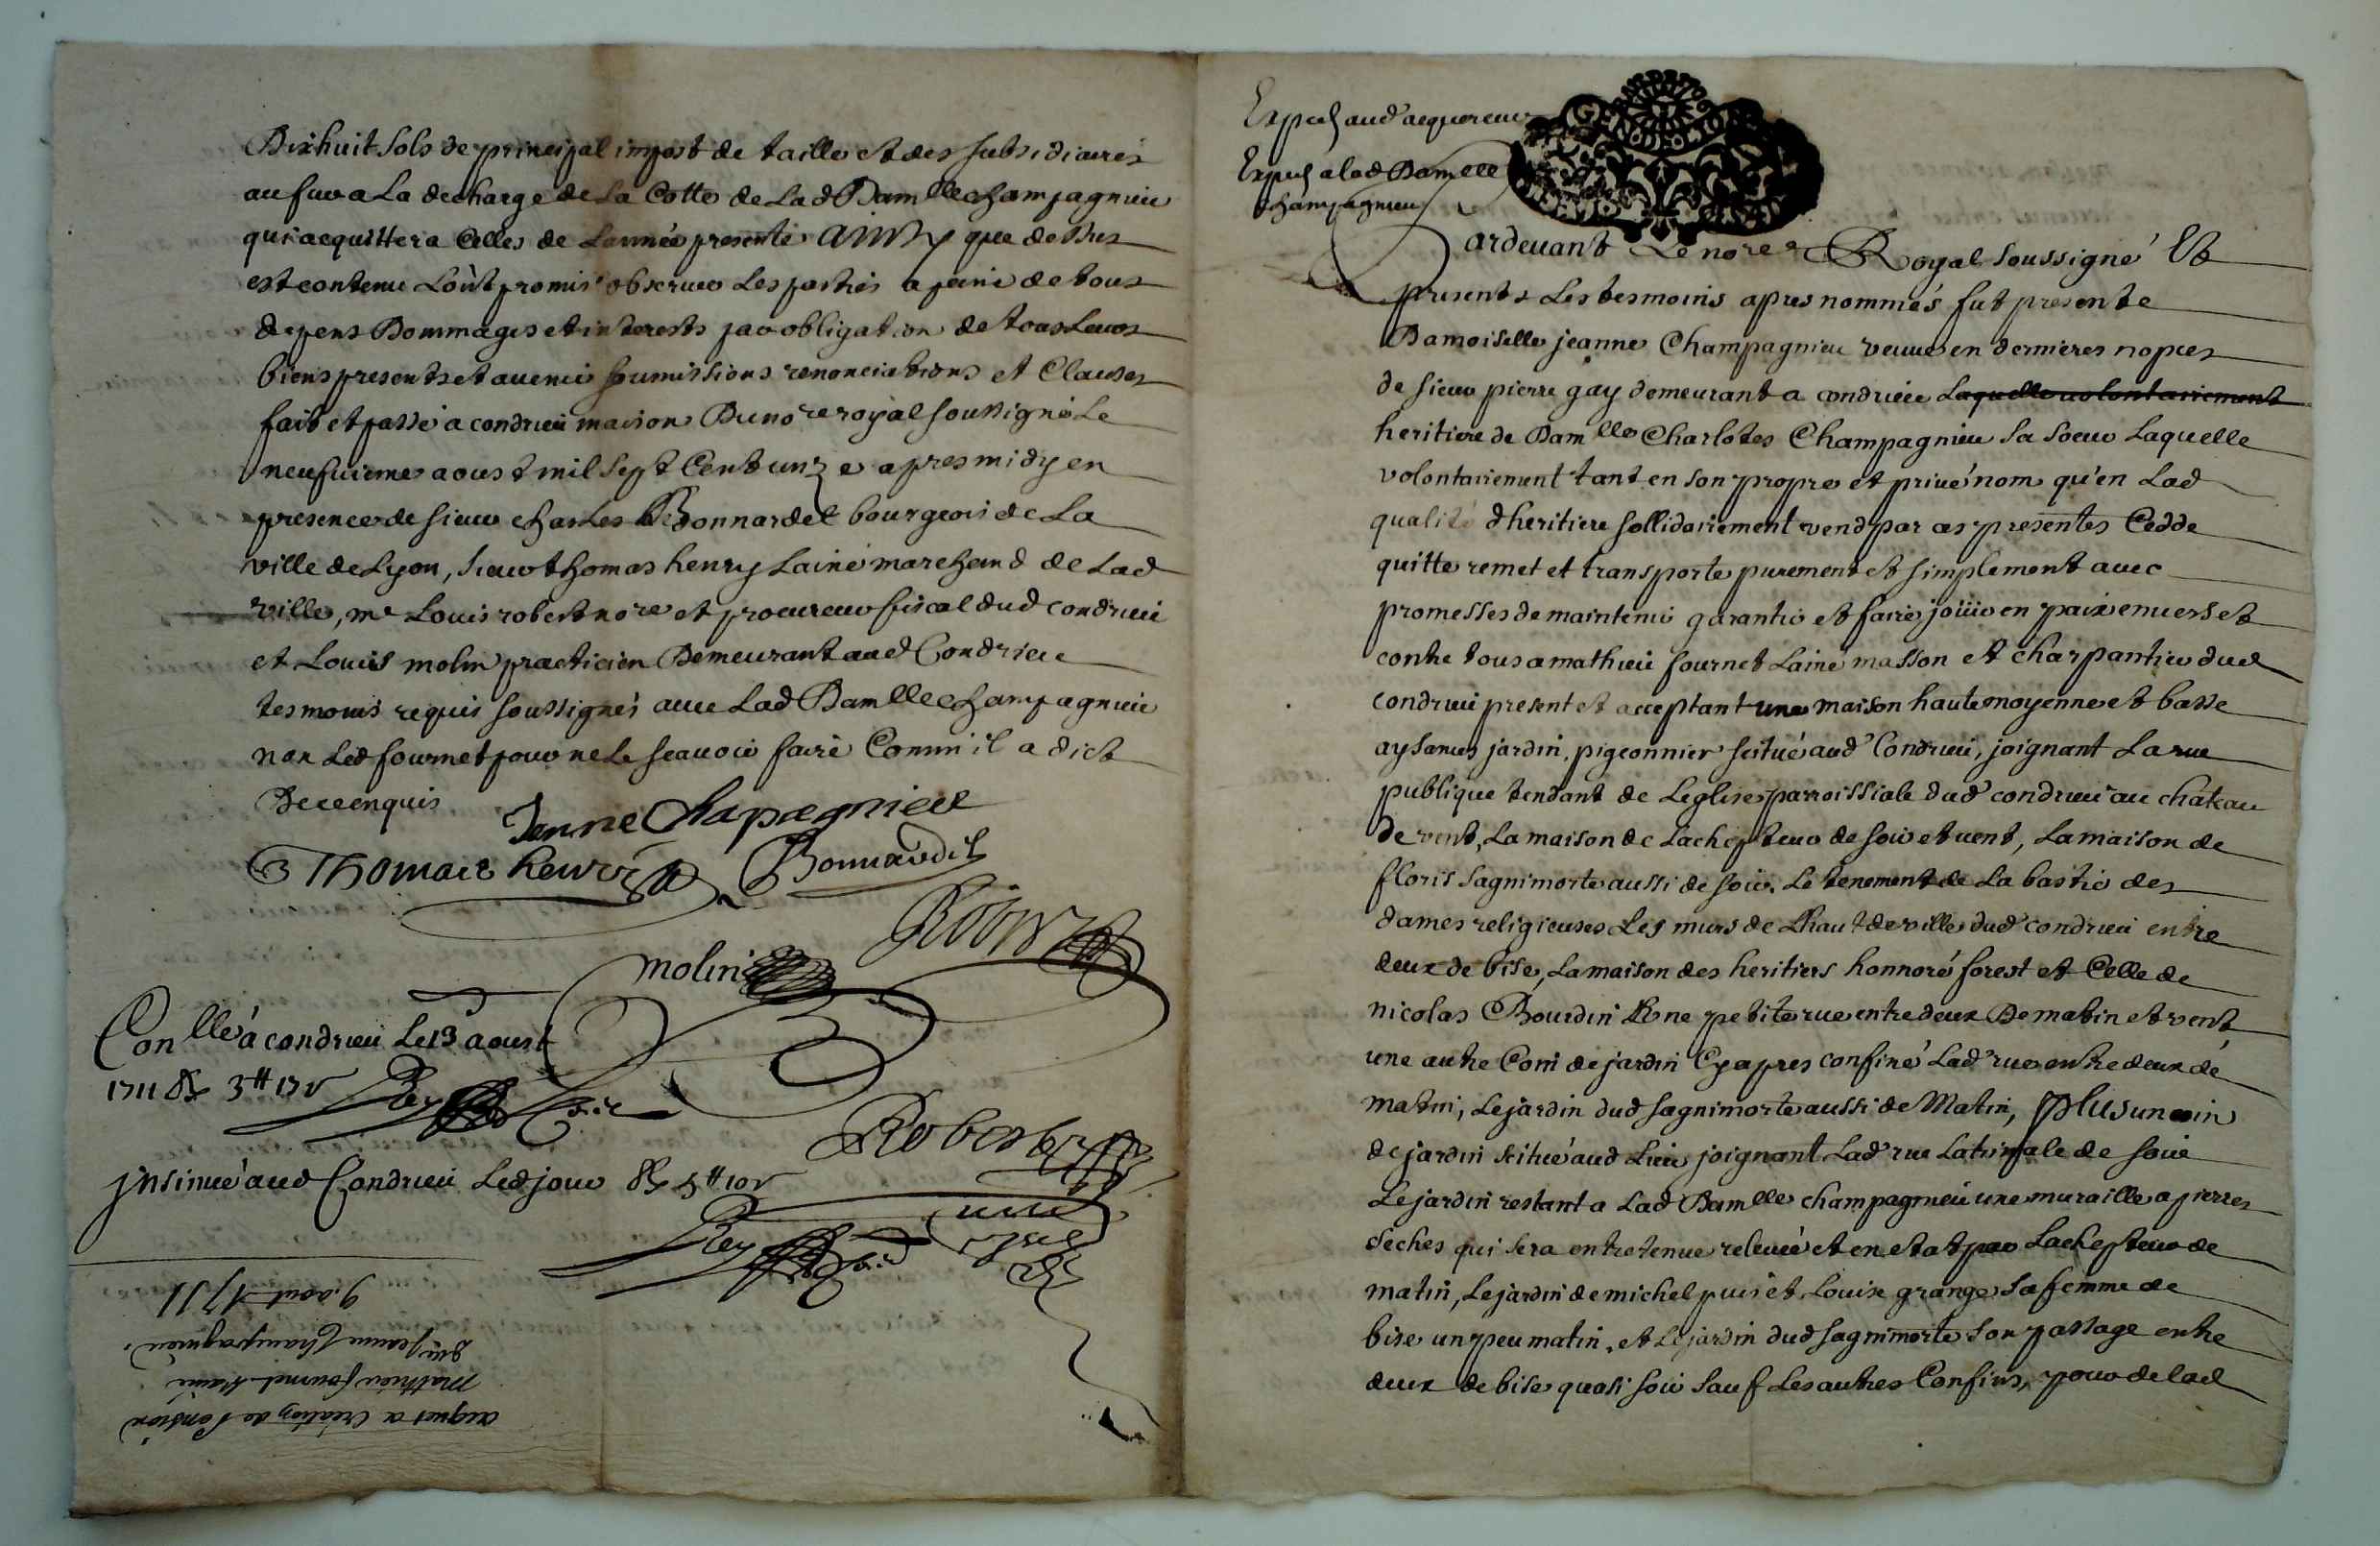 Dixhuit sols de principal impost de taille et des subsidiaires
au fur a La decharge de La Cotte de Lad Damlle champagnieu
qui acquittera Celles de Lannée presente ainsy que dessus
est contenu Lont promis observer Les parties a peine de tous
depens Dommages et interests par obligation de tous Leurs
biens presents et avenir soumissions renonciations et Clauses
fait et passé a condrieu maison Du nore royal soussigné Le
neufuieme aoust mil sept Cent unze apres midy en
presence de sieur charles Bonnardel bourgeois de La
ville de Lyon, sieur thomas henry Lainé marchand de Lad
ville, me Louis robert nore et procureur fiscal dud condrieu
et Louis molin practicien Demeurant aud Condrieu
tesmoins requis soussignés avec Lad Damlle champagnieu
non Led fournet pour ne Le scavoir faire Comm'il a dict
De ce enquis
Janne Chapagnieu
Thomais henry
Bonnardel
Robert
molin
Conllé a condrieu Le 13 aoust
1711 Rx 3tt 17s
Rey
Robert
jnsinué aud Condrieu Led jour Rx 5tt 10s
Rey
9. aout 1711
dlle Jeanne Champagnieu,
Mathieu fournet Lainé
acquet a Création de Pension
Expedé aud acquereur
Expedé a lad Damlle
champagnieu
GENERALITE DE LYON
Pardevant Le nore Royal soussigné Et
presents Les tesmoins apres nommés fut presente
Damoiselle jeanne Champagnieu veuve en dernieres nopces
de sieur pierre gay demeurant a condrieu Laquelle volontairement
heritiere de Damlle Charlotes Champagnieu sa soeur Laquelle
volontairement tant en son propre et privé nom qu'en Lad
qualité dheritiere sollidairement vend par ces presentes Cedde
quitte remet et transporte purement et simplement avec
promesses de maintenir garantir et faire joüir en paix envers et
contre tous a mathieu fournet Lainé masson et charpantier dud
condrieu present et acceptant une maison haute moyenne et basse
aysances jardin, pigeonnier scitué aud Condrieu, joignant La rue
publique tendant de Leglise parroissiale dud condrieu au château
de vent, La maison de Lachepteur de soir et vent, La maison de
floris sagnimorte aussi de soir, Le tenement de La bastie des
dames religieuses Les murs de Lhaut de ville dud condrieu entre
deux de bise, La maison des heritiers honnoré forest et Celle de
nicolas Bourdin Une petite rue entredeux De matin et vent
une autre Coin de jardin Cyapres confiné Lad rue entre deux de
matin, Le jardin dud sagnimorte aussi de Matin, Plus un coin
de jardin scitué aud Lieu joignant Lad rue de soir
Le jardin restant a Lad Damlle champagnieu une muraille a pierres
seches qui sera entretenue relevée et en etat par Lachepteur de
matin, Le jardin de michel et Louise grange sa femme de
bise un peu matin, et Le jardin dud sagnimorte son passage entre
deux de bise quasi soir sauf Les autres Confins, pour de lad